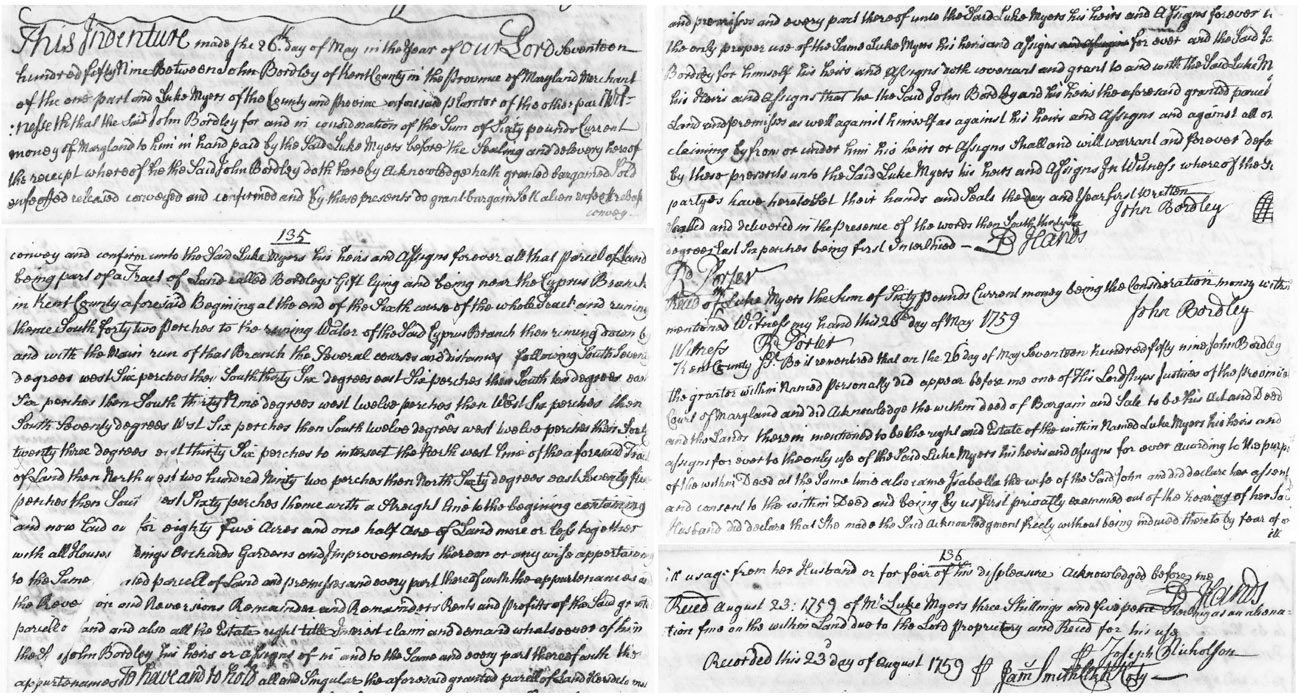 This Indenture made the 26th day of May in the Year of Our Lord Seventeen
hundred fifty Nine Between John Bordley of Kent County in the Province of Maryland Merchant
of the one part and Luke Myers of the County and Provine aforesaid planter of the other part Wit-
:nesseth that the Said John Bordley for and in consideration of the Sum of Sixty pounds Current
money of Maryland to him in hand paid by the Said Luke Myers before the Sealing and delevery hereof
the receipt whereof he the Said John Bordley doth hereby Acknowledge hath granted bargained Sold
enfeoffed released conveyed and confirmed and by these presents do grant bargain Sell alien enfeoff release
convey
135
convey and confirm unto the Said Luke Myers his heirs and Assigns forever all that parcell of Land
being part of a Tract of Land called Bordleys Gift lying and being near the Cyprus Branch
in Kent County aforesaid Begining at the end of the Sixth course of the whole Tract and runing
thence South forty two perches to the runing Water of the Said Cyprus Branch then runing down by
and with the Main run of that Branch the Several courses and distances following South Seven
degrees west Six perches then South thirty Six degrees east Six perches then South ten degrees east
Six perches then South thirty Nine degrees west twelve perches then West Six perches then
South Seventy degrees West Six perches then South twelve degrees west twelve perches then South
twenty three degrees east thirty Six perches to intersect the North west line of the aforesaid Tract
of Land then North west two hundred Ninty two perches then North Sixty degrees east Seventy five
perches then Sou est Sixty perches thence with a Streight line to the begining containing
and now Laid ou for eighty five Acres and one half Acre of Land more or less together
with all Houses ings Orchards Gardens and Improvements thereon or any wise appertaining
to the Same nted parcell of Land and premisses and every part thereof with the appurtenances
the Reve on and Reversions Remainder and Remainders Rents and Profitts of the Said
parcel o and and also all the Estate right title Interest claim and demand whatsoever of him
the John Bordley his heirs or assigns of in and to the Same and every part thereof with the
appurtenances To have and to hold all and Singular the aforesaid granted parcell of Land
and premisses and every part thereof unto the Said Luke Myers his heirs and Assigns forever
the only proper use of the Same Luke Myers his heirs and assigns for ever and the Said
Bordley for himself his heirs and Assigns doth covenant and grant to and with the Said Luke M
his Heirs and Assigns that he the Said John Bordley and his heirs the aforesaid granted parcel
Land and premisses as well against himself as against his heirs and Assigns and against all
claiming by from or under him his heirs or Assigns Shall and will warrant and forever defe
by these presents unto the Said Luke Myers his heirs and assigns In Witness where of the
partyes have hereto Set their hands and Seals the day and Year first written
Sealed and delivered in the presence of the words then South thirty Six John Bordley
degrees East Six perches being first Interlined B Hands
Rd Porter
Reced of Luke Myers the Sum of Sixty Pounds Current money being the Consideration money within
mentioned Witness my hand this 26th day of May 1759 John Bordley
Witness Rd Porter
Kent County Sct. Be it remembred that on the 26 day of May Seventeen hundred fifty nine John Bordley
the grantor within Named personally did appear before me one of His Lordships Justices of the Provincial
Court of Maryland and did Acknowledge the within deed of Bargain and Sale to be his Act and Deed
and the Lands therein mentioned to be the right and Estate of the within Named Luke Myers his heirs and
assigns for ever to the only use of the Said Luke Myers his heirs and assigns for ever according to the purp
of the within Deed at the Same time also came Isabella the wife of the Said John and did declare her assent
and consent to the within Deed and being by us first privatly examined out of the hearing of her Sd
Husband did declare that She made the Said Acknowledgment freely without being induced thereto by fear of or
ill
136
ill usage from her Husband or for fear of his displeasure Acknowledged before me
B Hands
Reced August 23: 1759 of Mr Luke Myers three Shillings and five pence Sterling as an aliena-
tion fine on the within Land due to the Lord Proprietary and Reced for his use
Joseph Nicholson
Recorded this 23d day of August 1759 Jam Smith Clk Cty